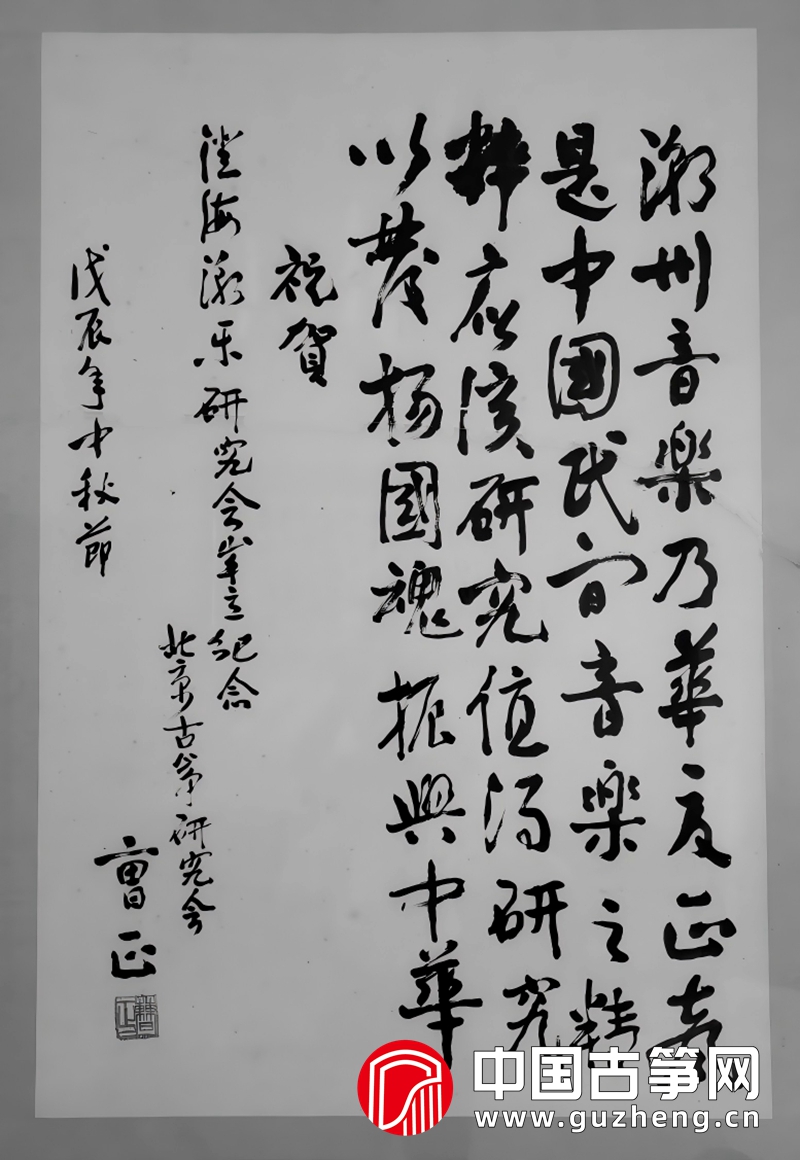 潮州音樂乃華夏正音
是中國民间音樂之精
粹应该研究值得研究
以發揚國魂振興中華
祝賀
澄海潮乐研究会峯立紀念
北京古筝研究会
曹正
戊辰年中秋節
中国古筝网
www.guzheng.cn